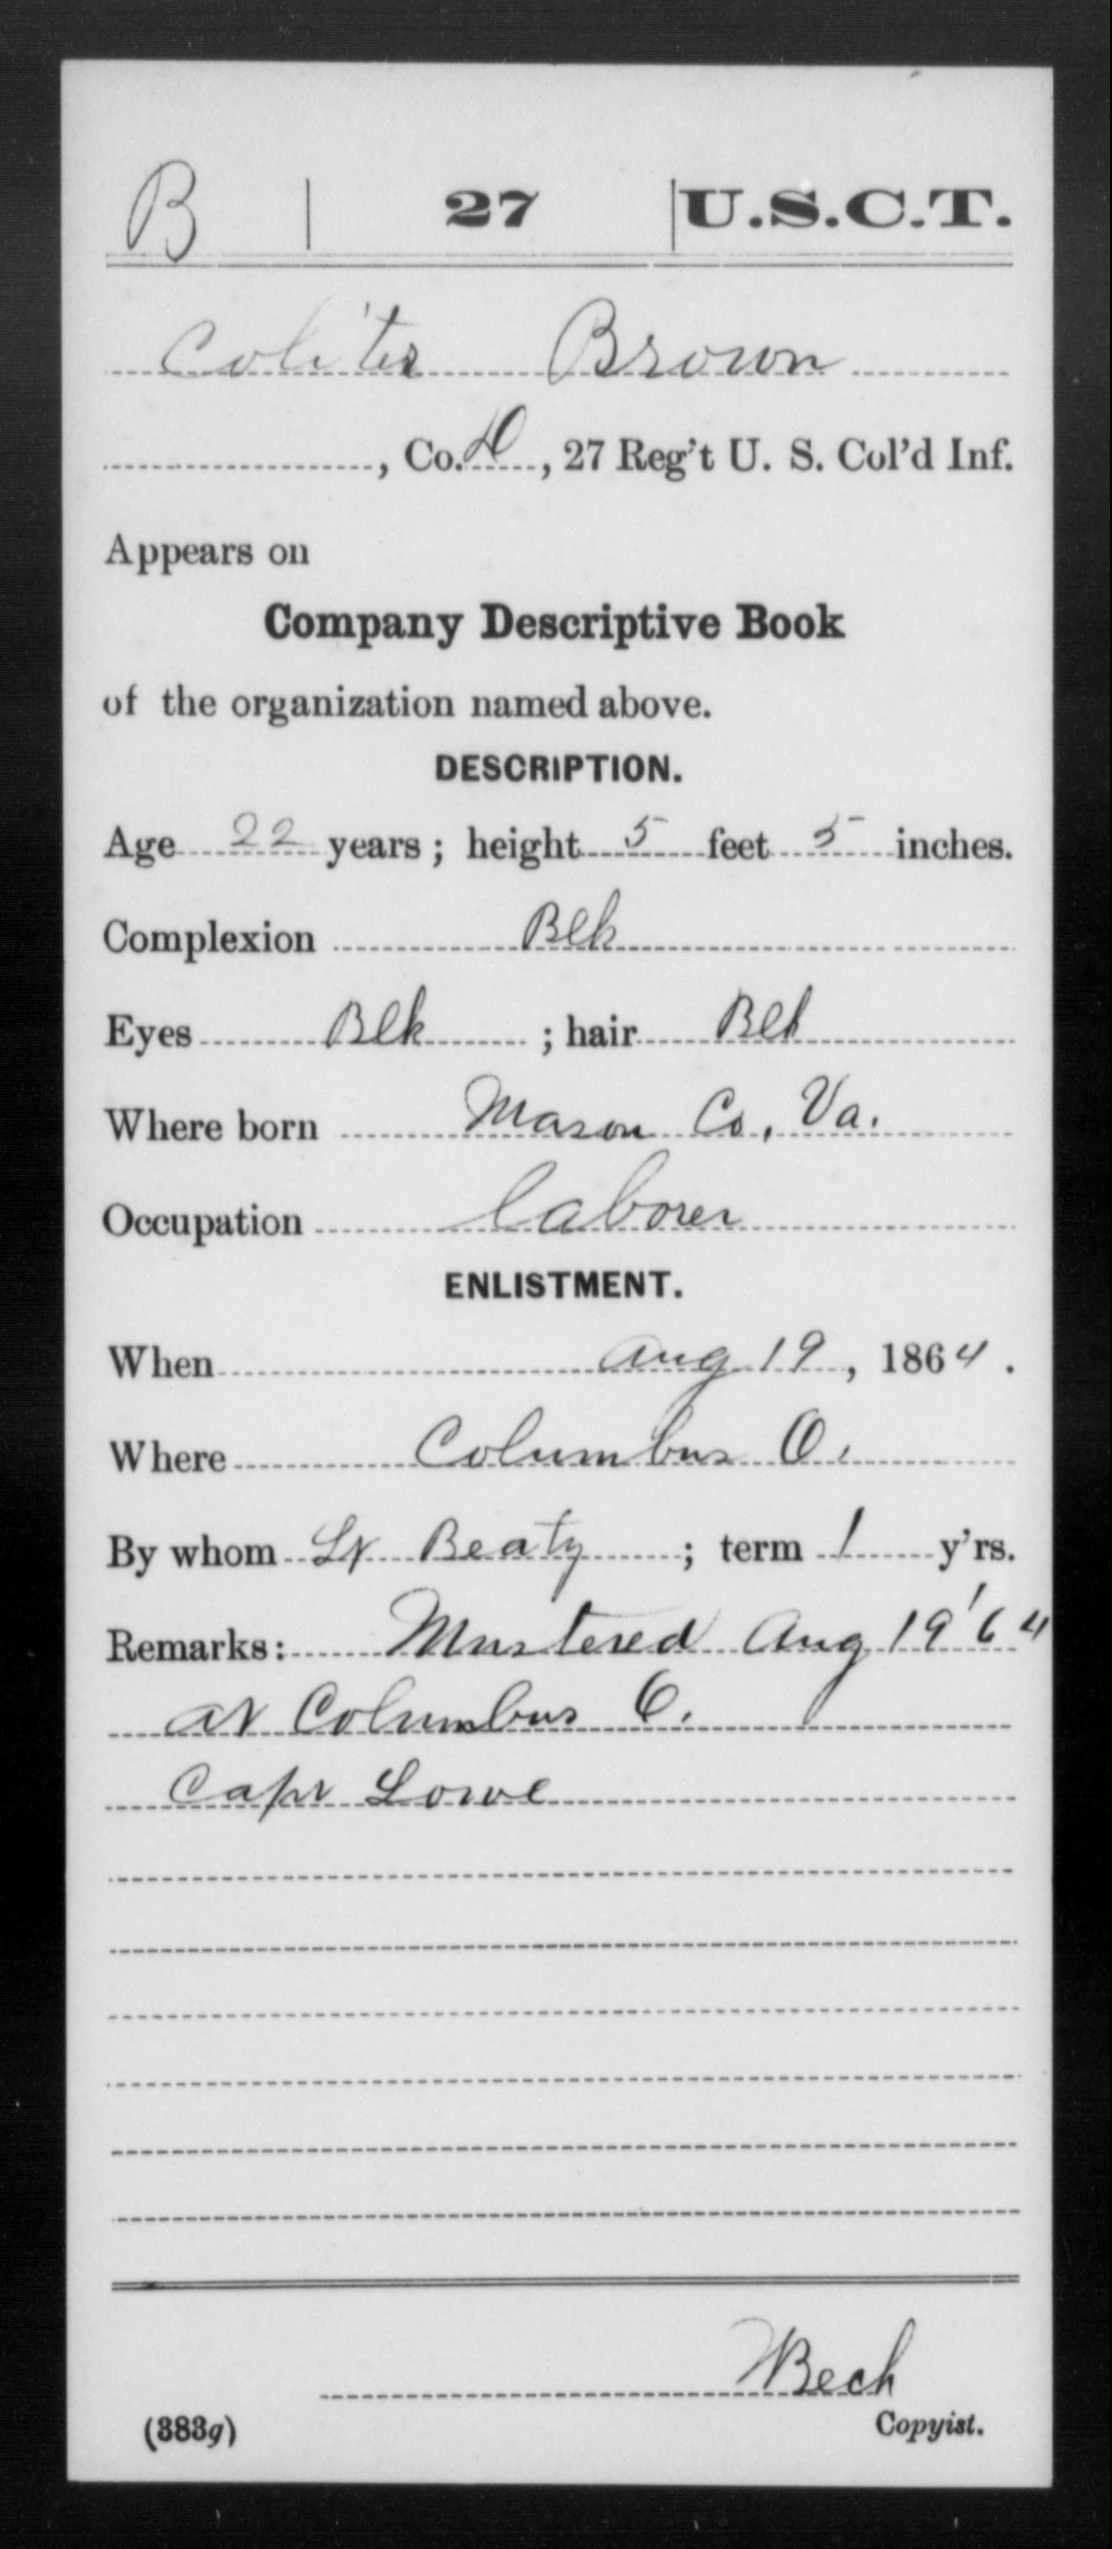 B | 27 | U.S.C.T.
Coliter Brown
, Co. D, 27 Reg't U. S. Col'd Inf.
Appears on
Company Descriptive Book
of the organization named above.
DESCRIPTION.
Age 22 years; height 5 feet 5 inches.
Complexion Blk
Eyes Blk; hair Blk
Where born Mason Co, Va.
Occupation laborer
ENLISTMENT.
When Aug 19, 1864.
Where Columbus O.
By whom Lt Beaty; term 1 y'rs.
Remarks: Mustered Aug 19 '64
at Columbus O.
Capt Lowe
Bech
(383g) Copyist.